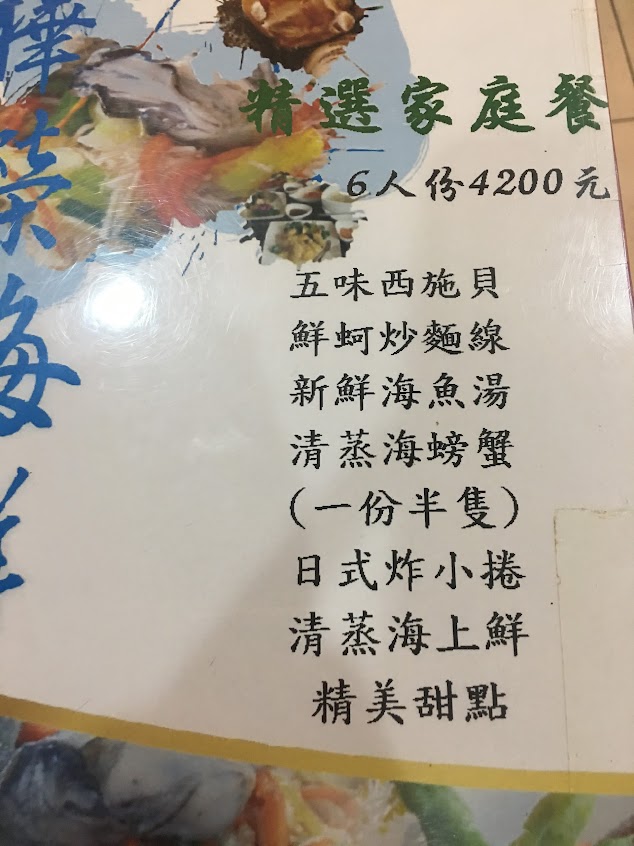 精選家庭餐
6人份4200元
五味西施貝
鮮蚵炒麵線
新鮮海魚湯
清蒸海螃蟹
(一份半隻)
日式炸小捲
清蒸海上鮮
精美甜點